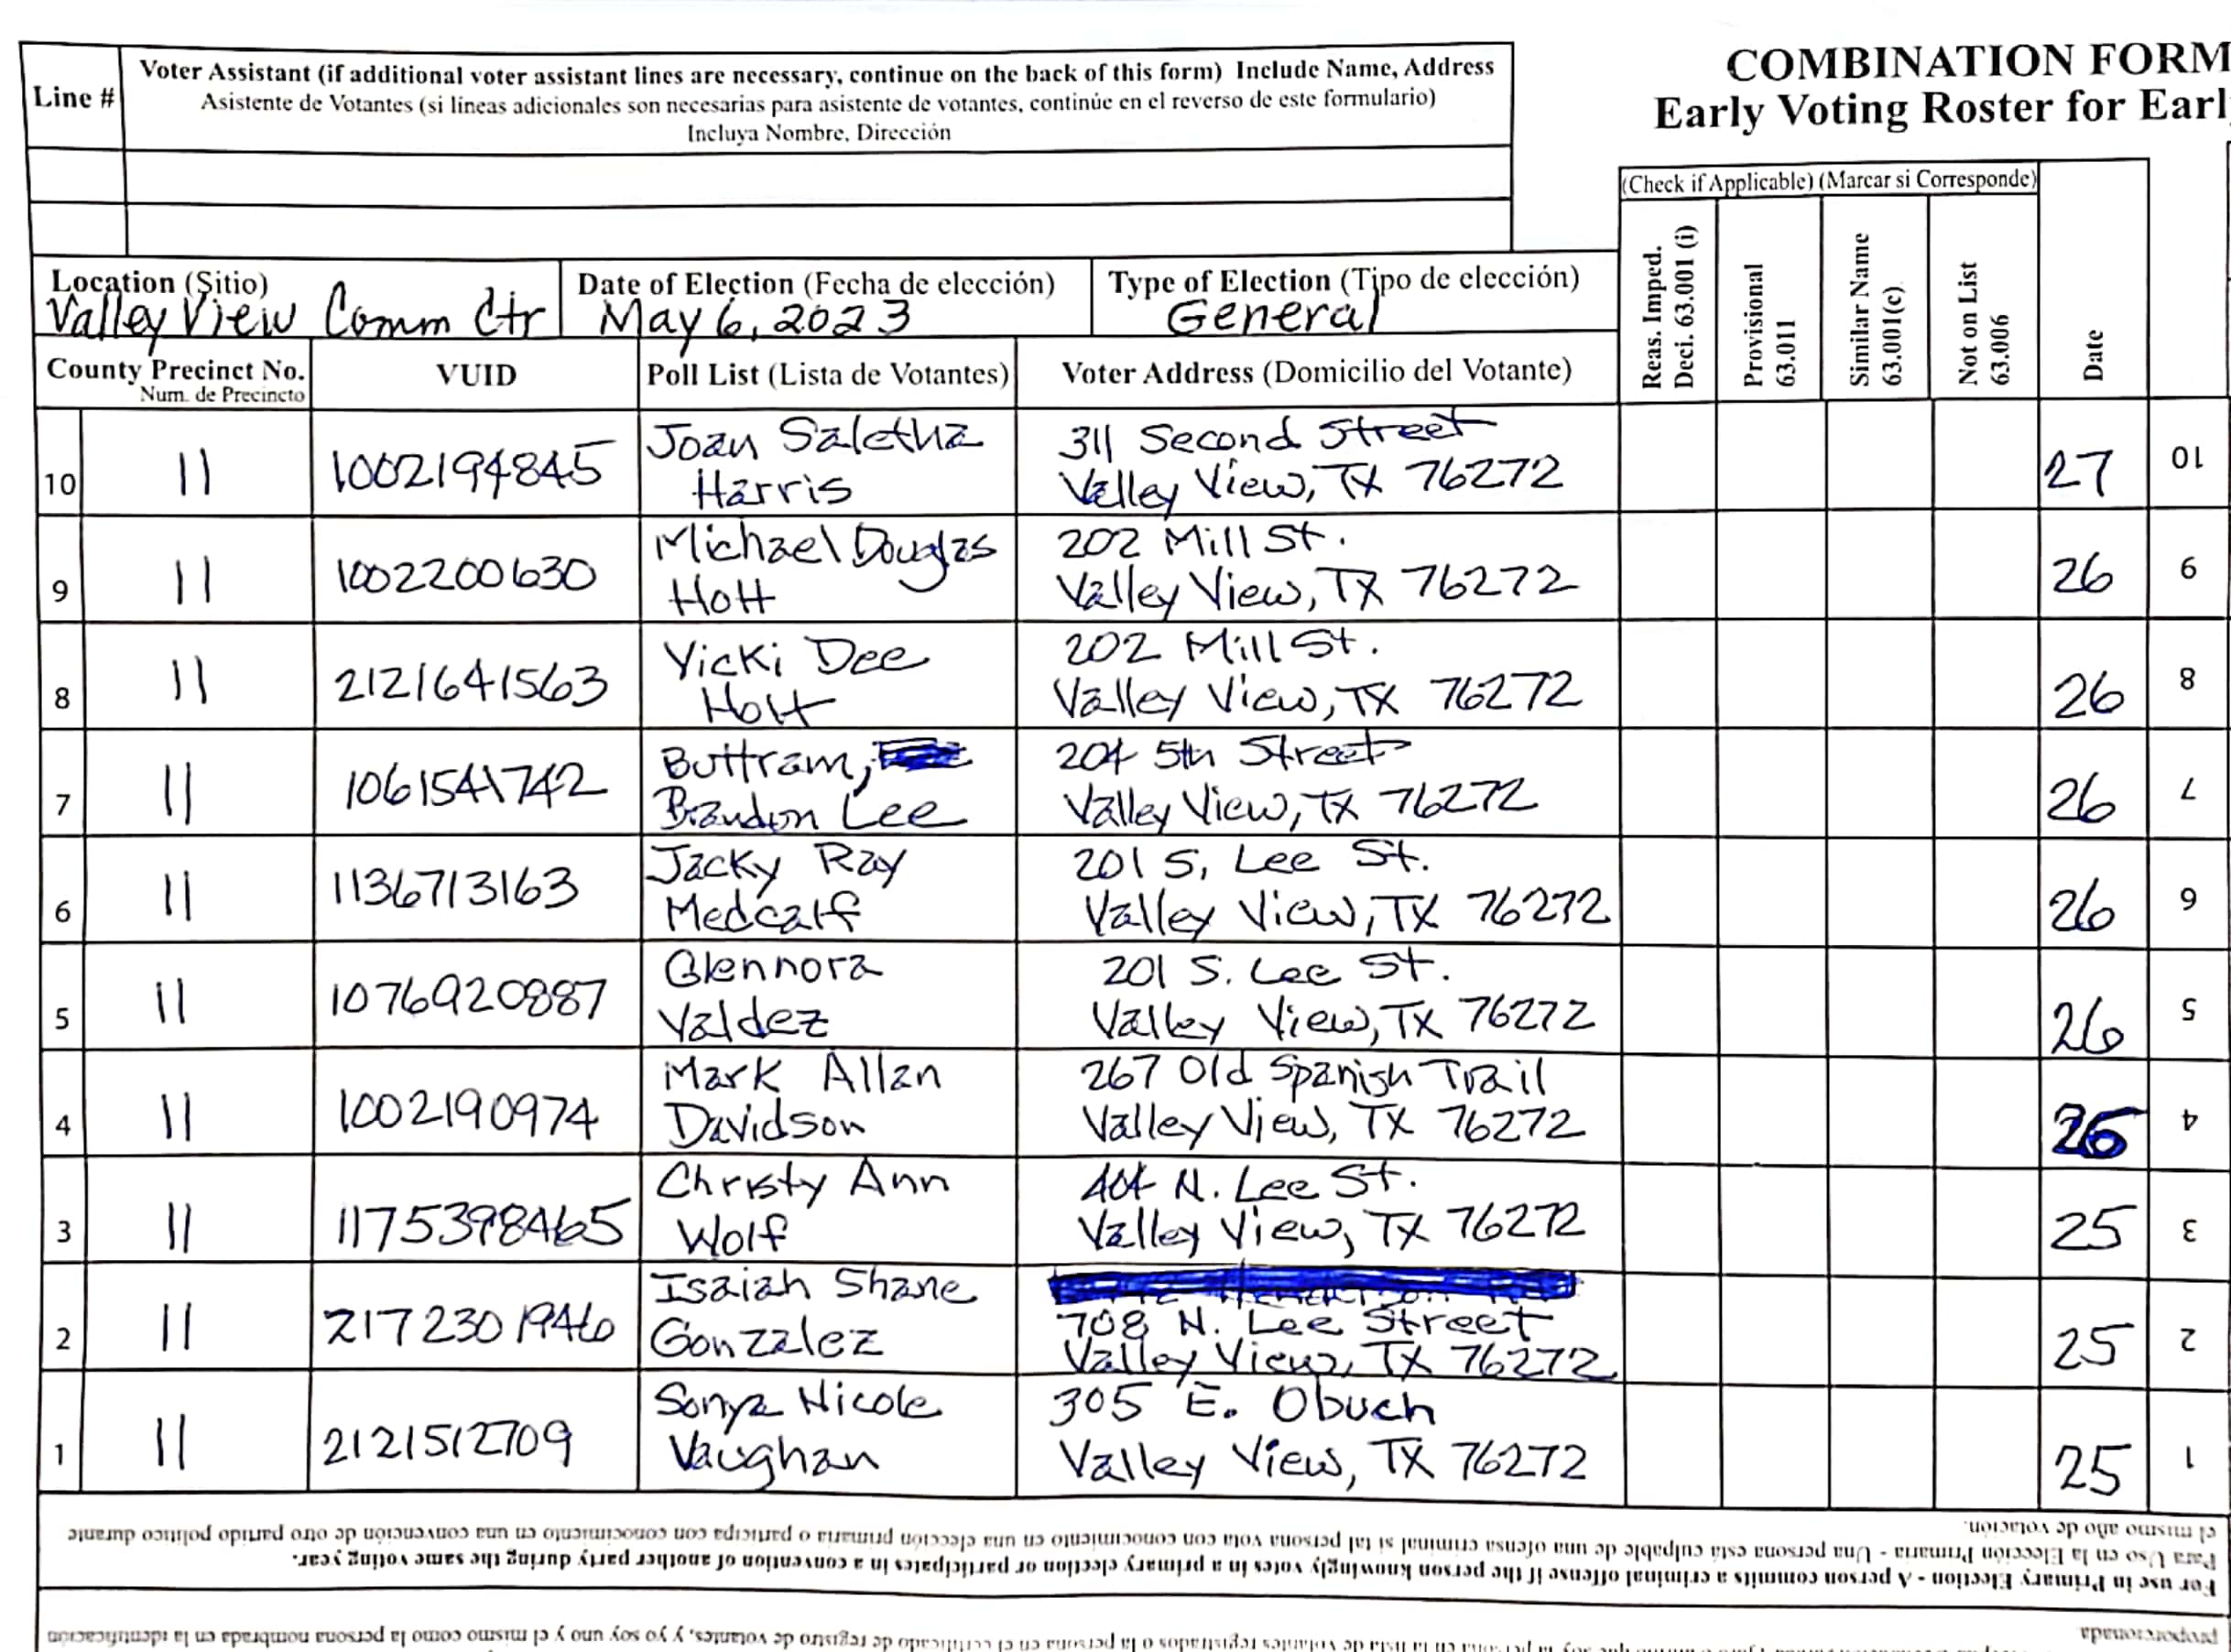 Line #
Voter Assistant (if additional voter assistant lines are necessary, continue on the back of this form) Include Name, Address
Asistente de Votantes (si lineas adicionales son necesarias para asistente de votantes, continúe en el reverso de este formulario)
Incluya Nombre, Dirección
COMBINATION FORM
Early Voting Roster for Earl
(Check if Applicable) (Marcar si Corresponde)
Reas. Imped.
Deci. 63.001 (i)
Provisional
63.011
Similar Name
63.001(c)
Not on List
63.006
Date
Location (Sitio)
Valley View Comm Ctr
Date of Election (Fecha de elección)
May 6, 2023
Type of Election (Tipo de elección)
General
County Precinct No.
Num. de Precincto
VUID
Poll List (Lista de Votantes)
Voter Address (Domicilio del Votante)
10 11 1002194845 Joan Saletha Harris 311 Second Street Valley View, TX 76272 27 10
9 11 1002200630 Michael Douglas Hott 202 Mill St. Valley View, TX 76272 26 9
8 11 2121641563 Vicki Dee Hott 202 Mill St. Valley View, TX 76272 26 8
7 11 1061541742 Buttram, Brandon Lee 204 5th Street Valley View, TX 76272 26 7
6 11 1136713163 Jacky Ray Medcalf 201 S, Lee St. Valley View, TX 76272 26 6
5 11 1076920887 Glennora Valdez 201 S. Lee St. Valley View, TX 76272 26 5
4 11 1002190974 Mark Allan Davidson 267 Old Spanish Trail Valley View, TX 76272 26 4
3 11 1175398465 Christy Ann Wolf 404 N. Lee St. Valley View, TX 76272 25 3
2 11 2172301946 Isaiah Shane Gonzalez 708 N. Lee Street Valley View, TX 76272 25 2
1 11 2121512709 Sonya Nicole Vaughan 305 E. Obuch Valley View, TX 76272 25 1
For use in Primary Election - A person commits a criminal offense if the person knowingly votes in a primary election or participates in a convention of another party during the same voting year.
Para Uso en la Elección Primaria - Una persona está culpable de una ofensa criminal si tal persona vota con conocimiento en una elección primaria o participa con conocimiento en una convención de otro partido político durante
el mismo año de votación.
proporcionada